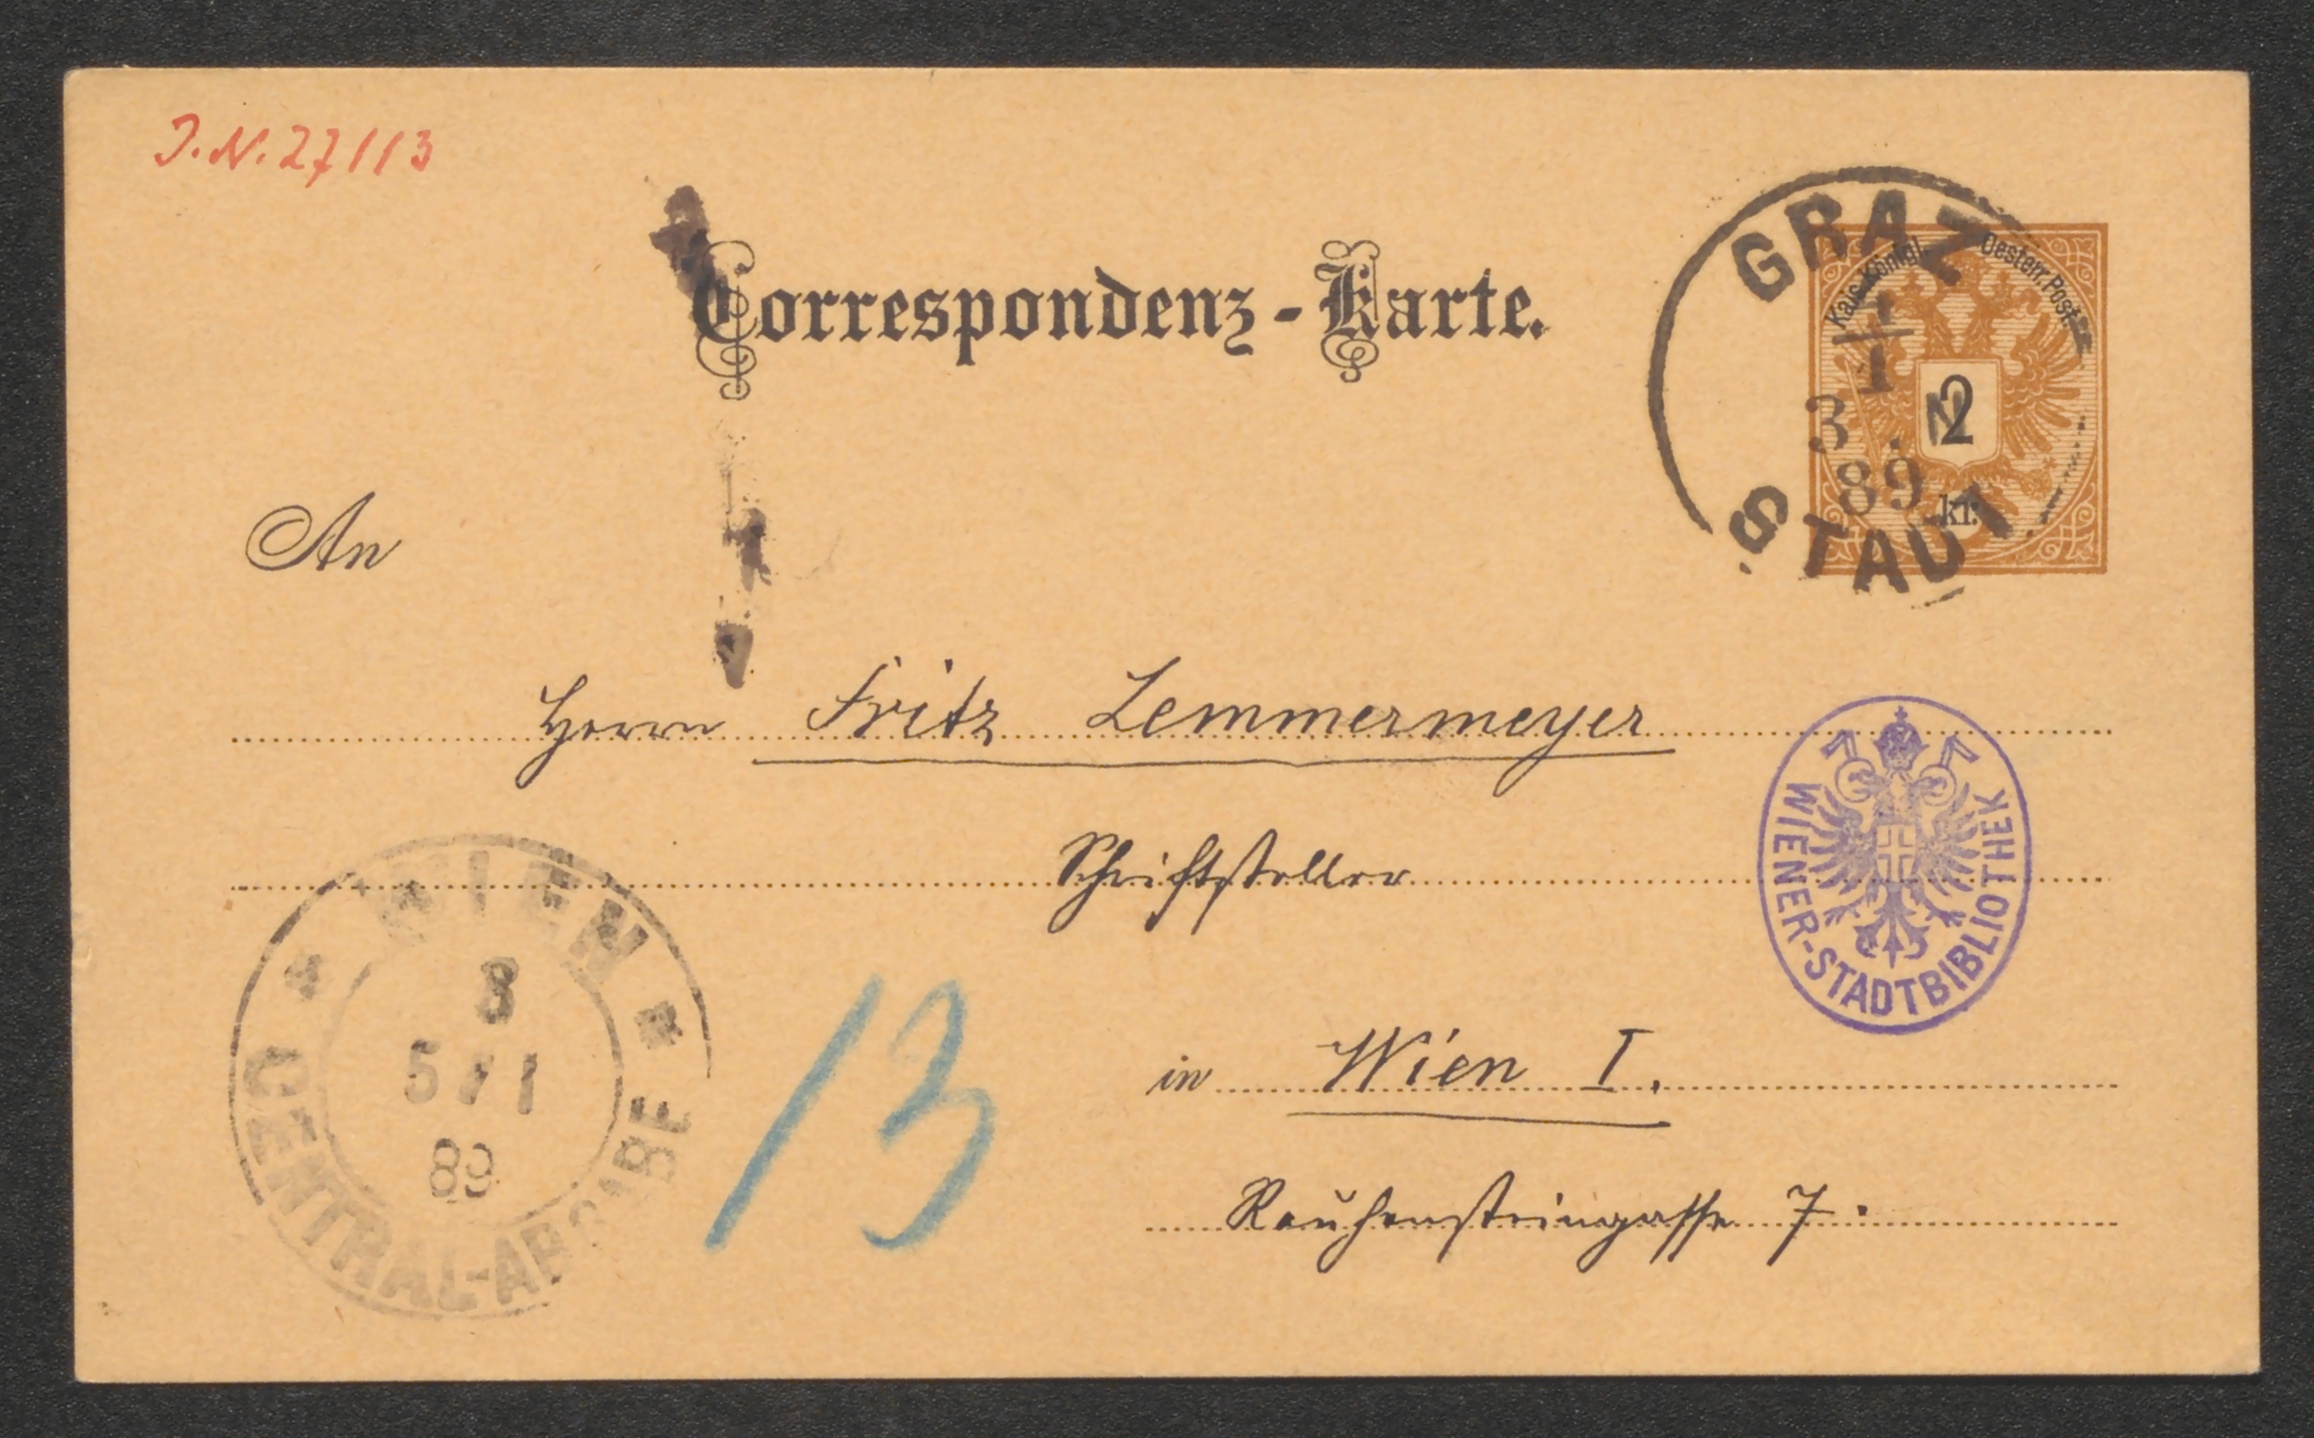 J.N. 27113
Correspondenz-Karte.
GRAZ
STADT
3 . N
89
Kais. Königl. Oesterr. Post.
2
kr.
An
Herrn Fritz Lemmermeyer
Schriftsteller
WIENER-STADTBIBLIOTHEK
WIEN
8
5 / 1
89
CENTRAL-ABGABE
13
in Wien I.
Rauhensteingasse 7.